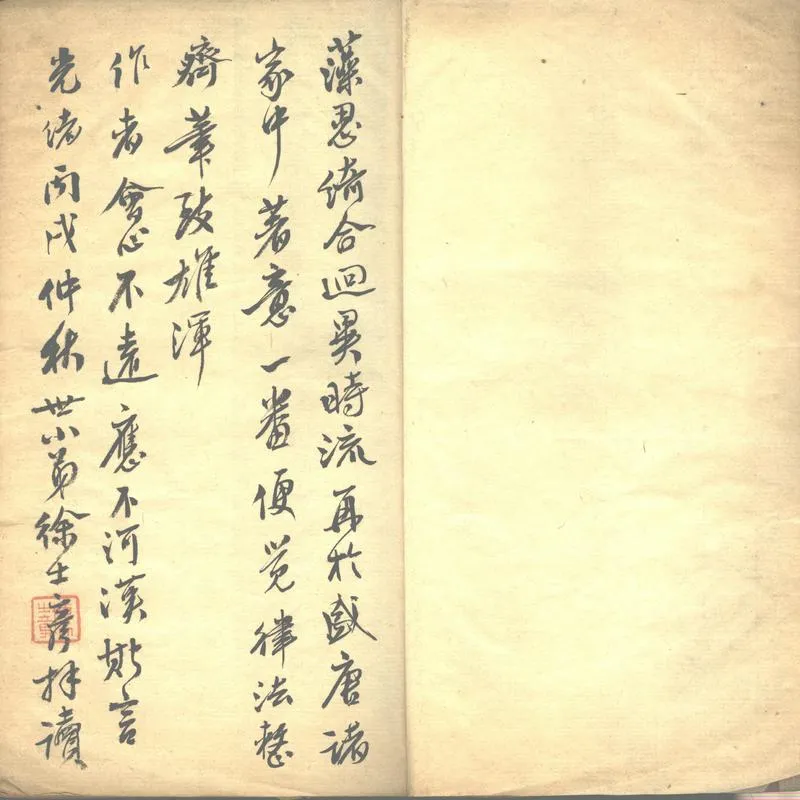 藻思綺合迥異時流再於盛唐諸
家中著意一番便覺律法整
齊筆致雄渾
作者會心不遠應不河漢斯言
光緒丙戌仲秋世小弟徐士彥拜讀